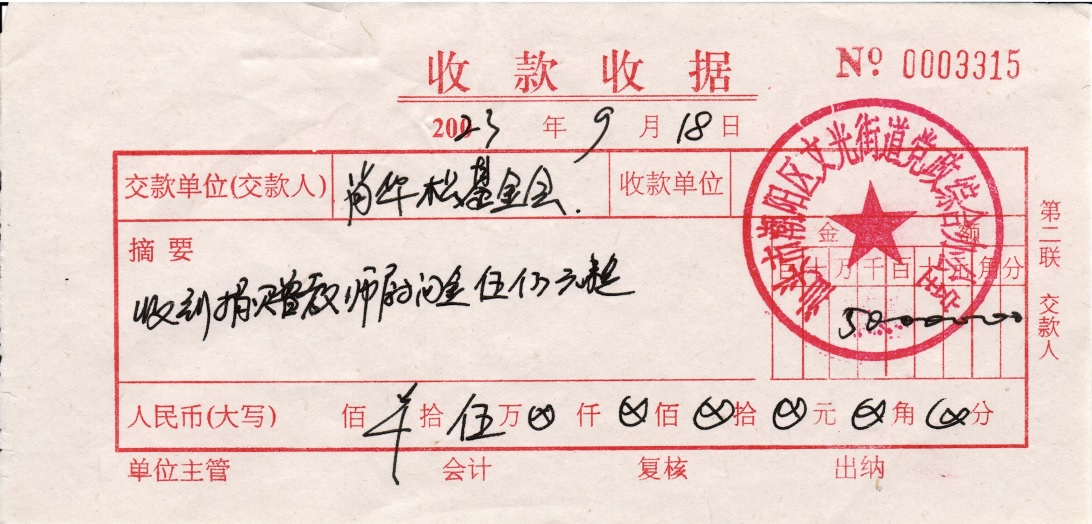 收款收据
№ 0003315
20023年9月18日
交款单位(交款人) 肖华松基金会. 收款单位
金额
摘要
百十万千百十元角分
收到捐赠教师慰问金伍仟元整
50000000
人民币(大写) 佰 拾伍万⊗仟⊗佰⊗拾⊗元⊗角⊗分
单位主管 会计 复核 出纳
第二联 交款人
汕头市潮阳区文光街道党政综合办公室